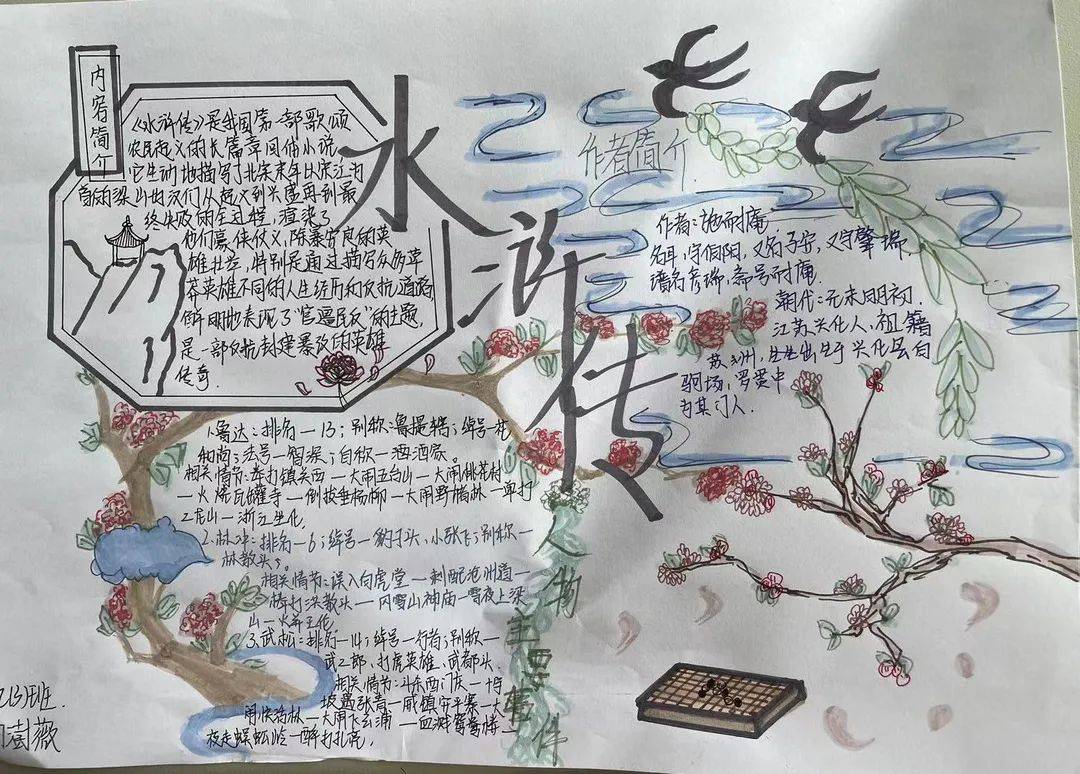 内容简介
《水浒传》是我国第一部歌颂
农民起义的长篇章回体小说
它生动地描写了北宋末年以宋江为
首的梁山好汉们从起义到兴盛再到最
终失败的全过程,渲染了
他们豪侠仗义,除暴安良的英
雄壮举,特别是通过描写众多草
莽英雄不同的人生经历和反抗道路
鲜明地表现了"官逼民反"的主题,
是一部反抗封建暴政的英雄
传奇.
水浒传
作者简介
作者:施耐庵.
名耳,字伯阳,又名子安,又字肇瑞,
谱名彦端,斋号耐庵
朝代:元末明初.
江苏兴化人,祖籍
苏州,生出生于兴化县白
驹场,罗贯中
为其门人.
人物主要事件
1.鲁达:排名一13;别称:鲁提辖;绰号一花
和尚;法号一智深;自称一洒洒家。
相关情节:拳打镇关西一大闹五台山一大闹桃花村
一火烧瓦罐寺一倒拔垂杨柳一大闹野猪林一单打
二龙山一浙江坐化,
2.林冲:排名一6;绰号一豹子头,小张飞;别称一
林教头。
相关情节:误入白虎堂一刺配沧州道一
棒打洪教头一风雪山神庙一雪夜上梁
山一火并王伦
3.武松:排名一14;绰号一行者;别称一
武二郎,打虎英雄,武都头.
相关情节:斗杀西门庆一十字
坡遇张青一威镇安平寨一大
闹快活林一大闹飞云浦一血溅鸳鸯楼一
夜走蜈蚣岭一醉打孔亮,
213班.
澍薇